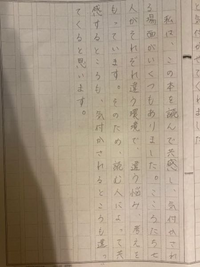 私は、この本を読んで共感し、気付かされ
る場面がいくつもありました。
人がそれぞれ違う環境で、違う悩み、考えを
もっています。そのため、読む人によって共
感するところも、気付かされるところも違っ
てくると思います。